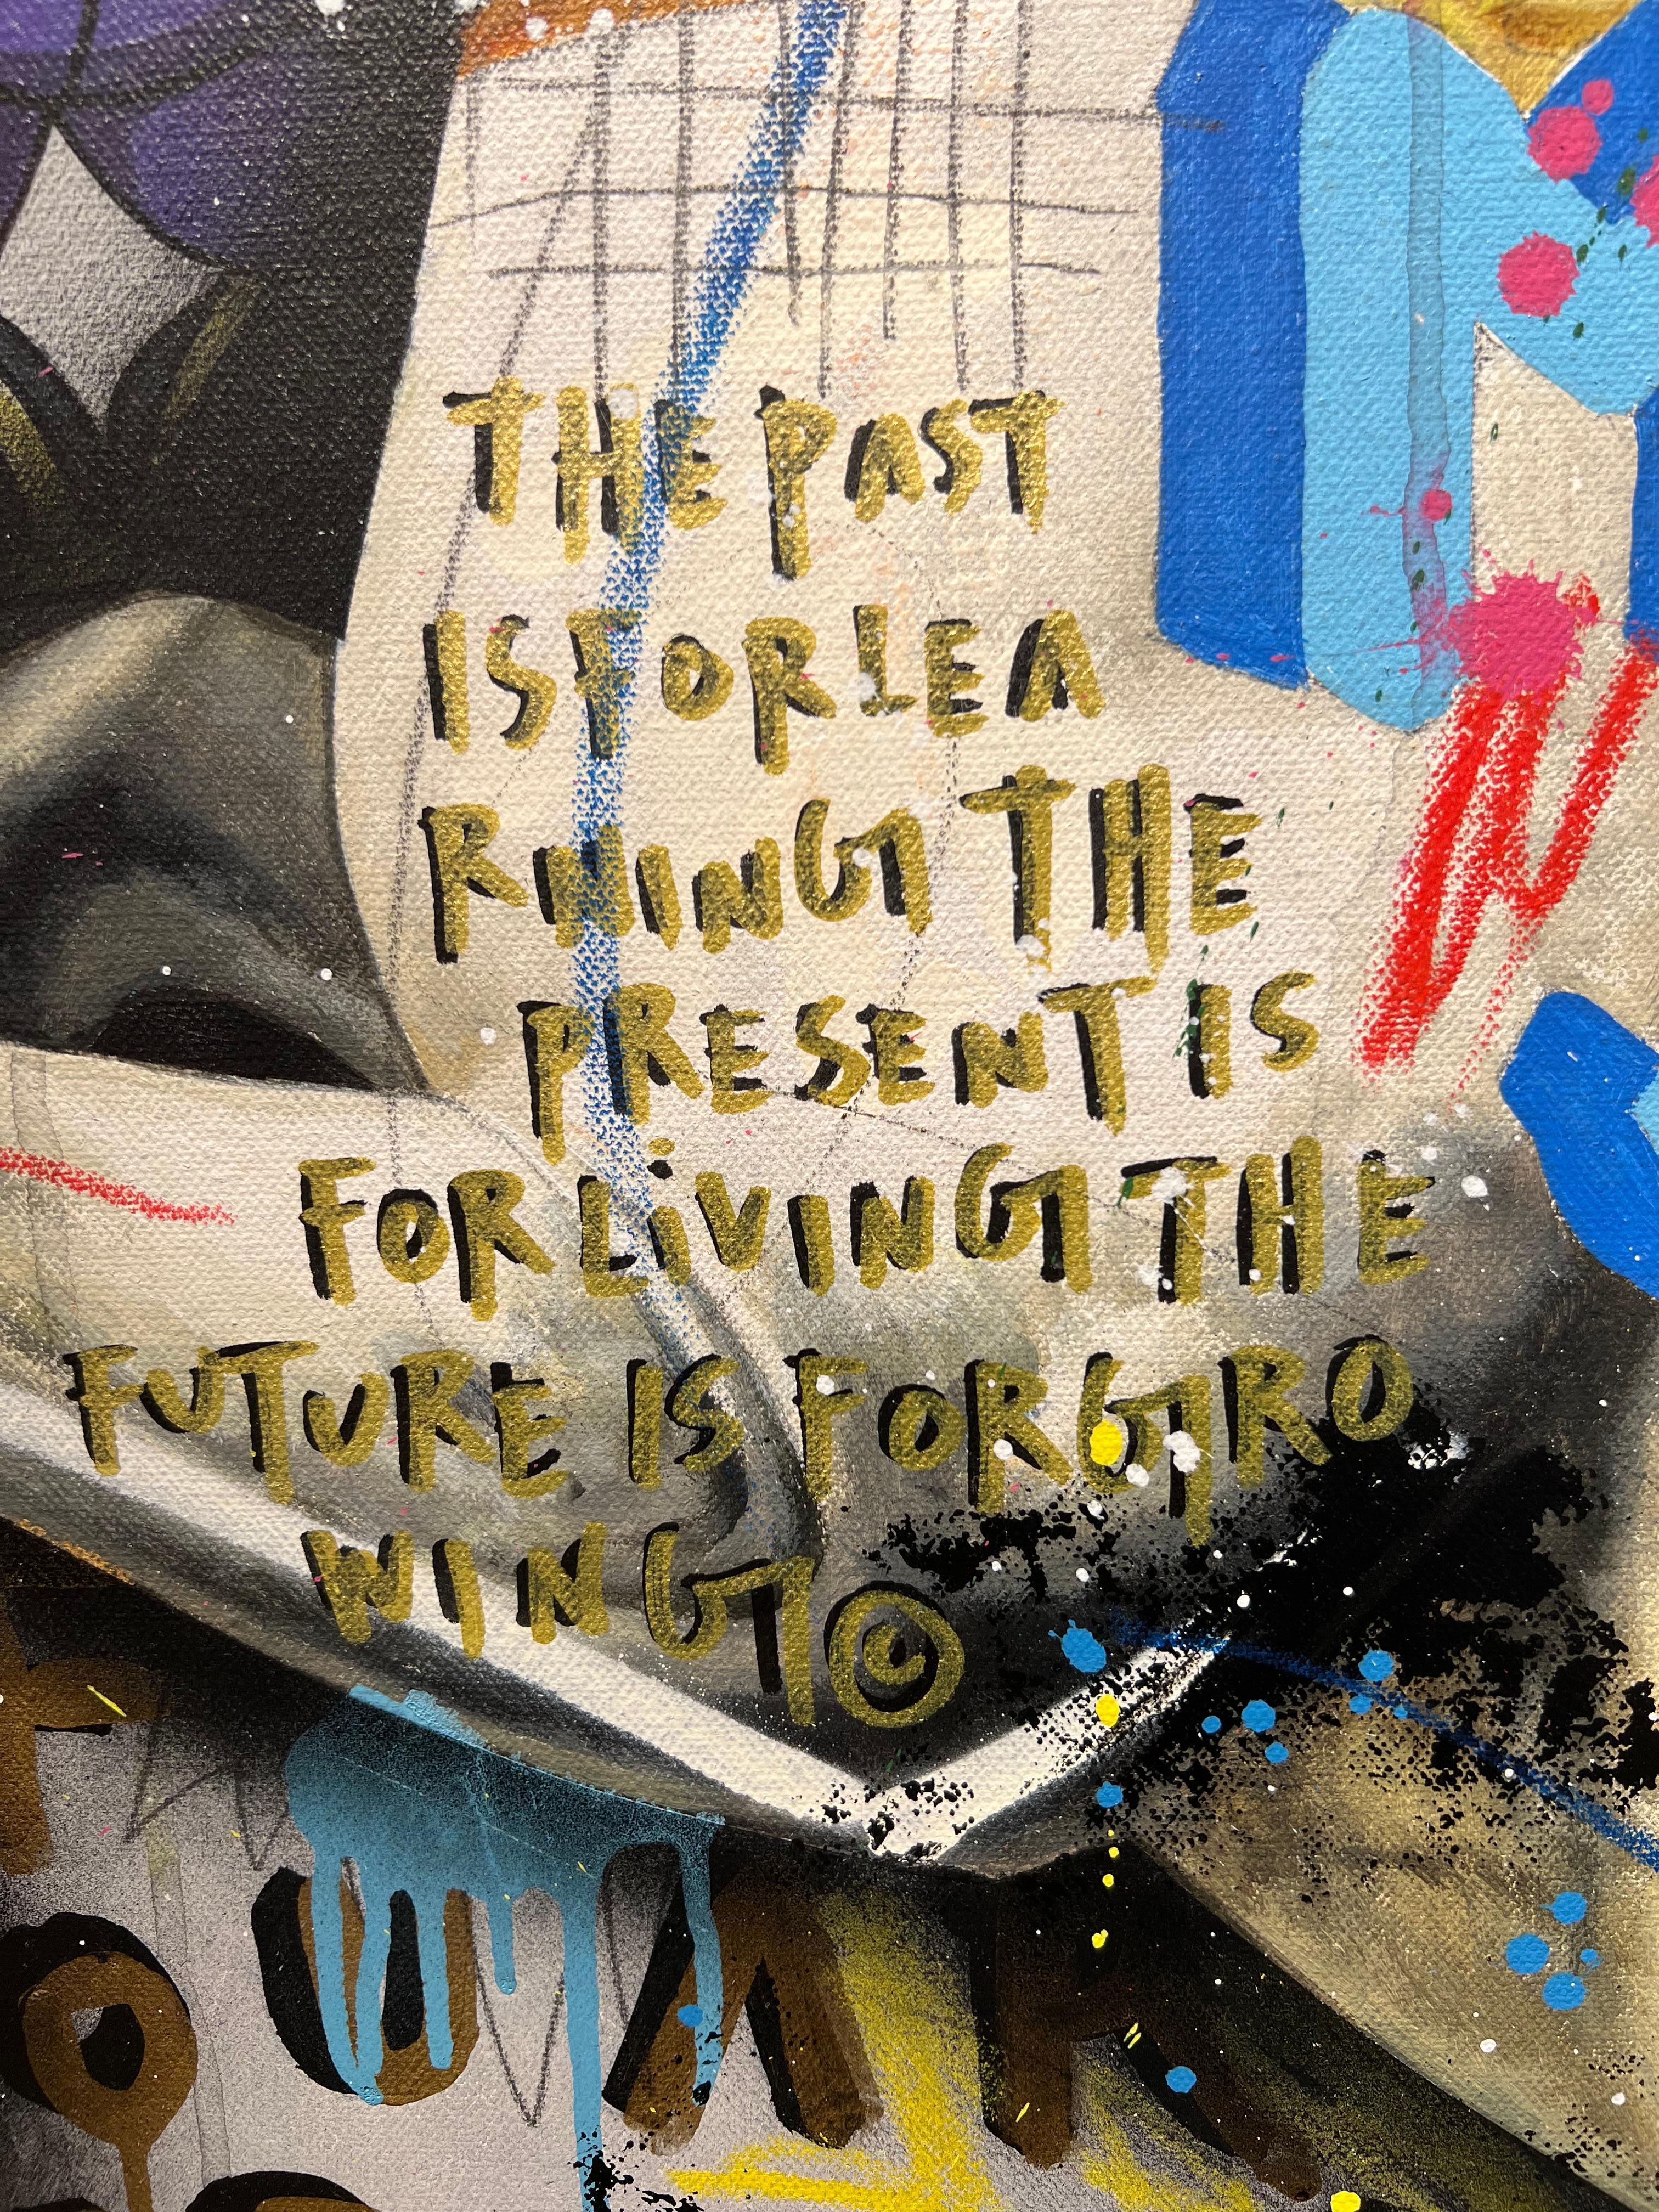 THE PAST
IS FOR LEA
RNING THE
PRESENT IS
FOR LiVING THE
FUTURE IS FOR GRO
WING ©